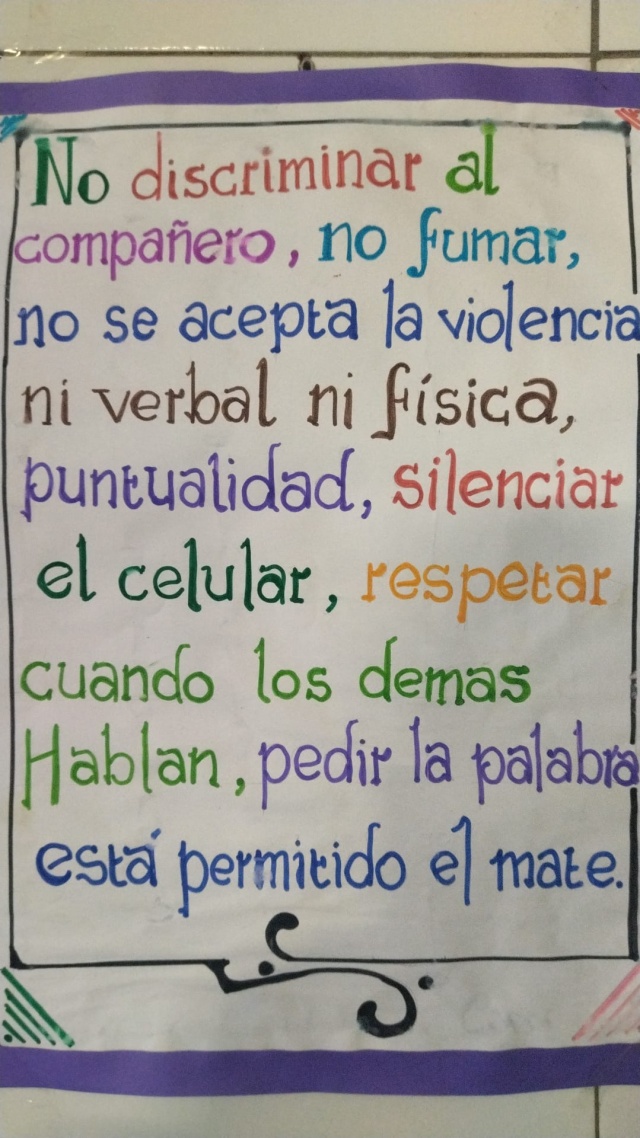 No discriminar al
compañero, no fumar,
no se acepta la violencia
ni verbal ni física,
puntualidad, silenciar
el celular, respetar
cuando los demas
Hablan, pedir la palabra
está permitido el mate.